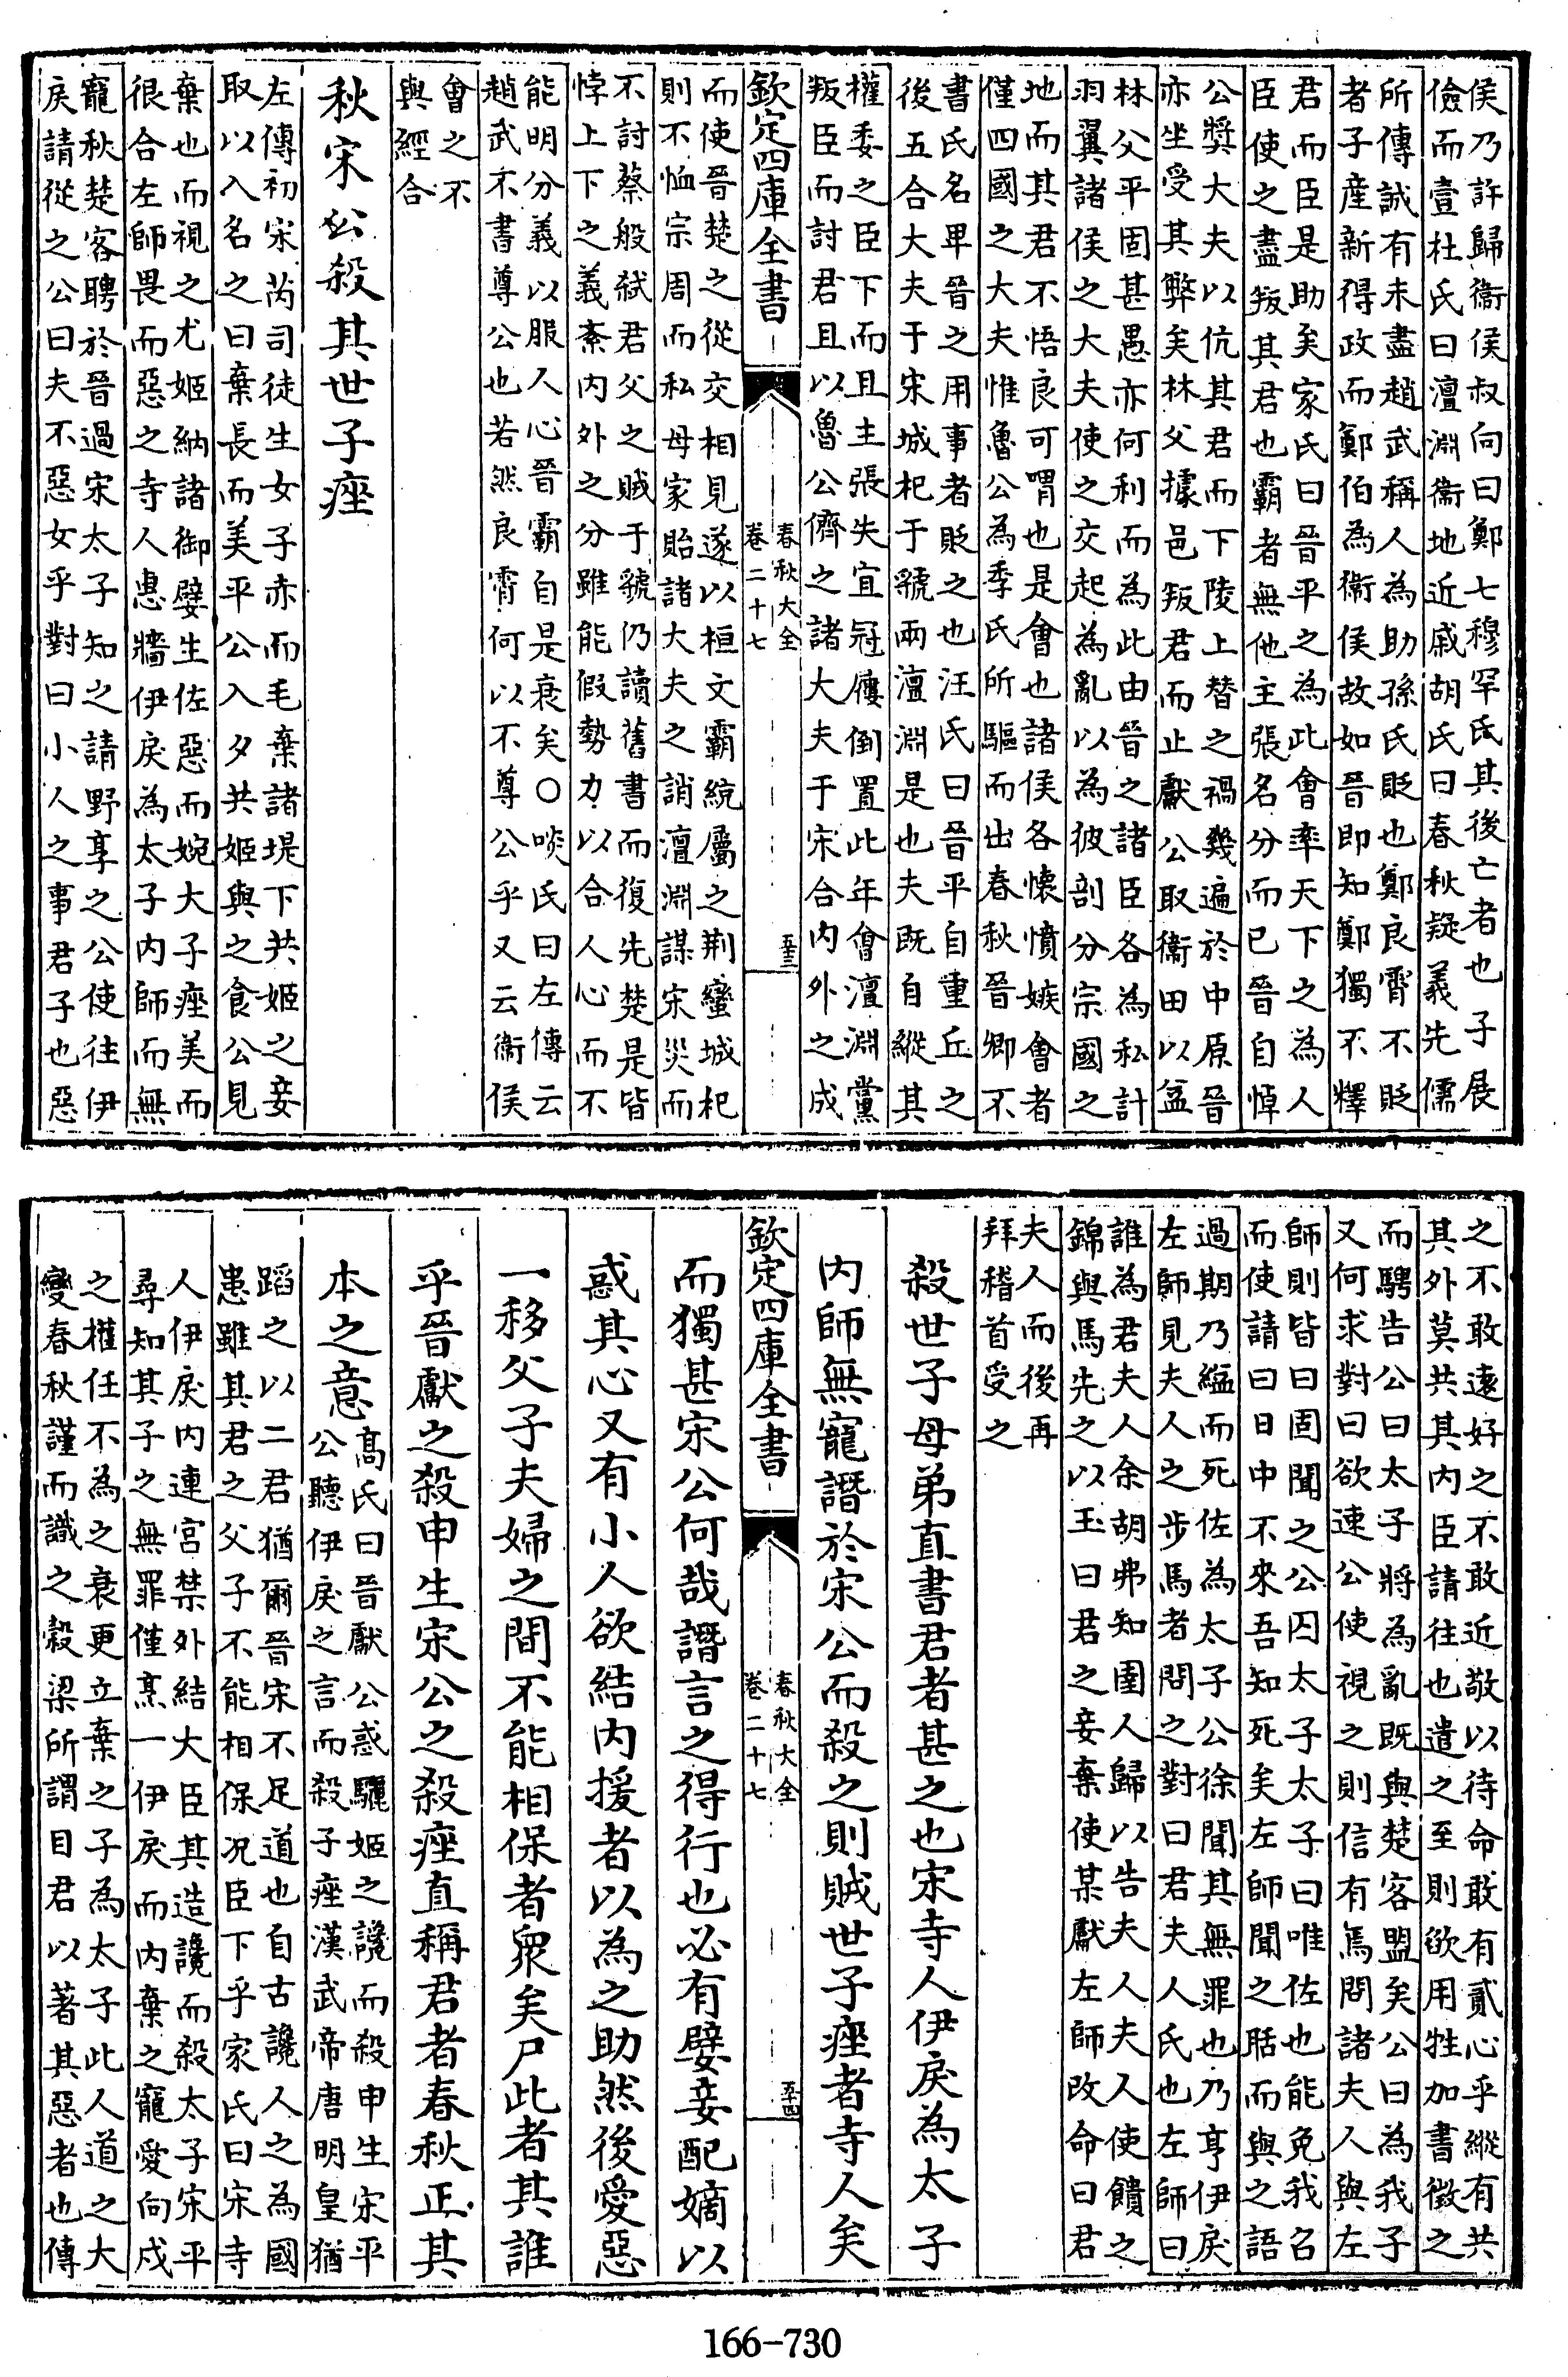 侯乃許歸衞侯叔向曰鄭七穆罕氏其後亡者也子展
儉而壹杜氏曰澶淵衞地近戚胡氏曰春秋疑義先儒
所傳誠有未盡趙武稱人為助孫氏貶也鄭良霄不貶
者子産新得政而鄭伯為衞侯故如晉即知鄭獨不釋
君而臣是助矣家氏曰晉平之為此會率天下之為人
臣使之盡叛其君也霸者無他主張名分而已晉自悼
公奬大夫以伉其君而下陵上替之禍幾遍於中原晉
亦坐受其弊矣林父據邑叛君而止獻公取衞田以益
林父平固甚愚亦何利而為此由晉之諸臣各為私計
羽翼諸侯之大夫使之交起為亂以為彼剖分宗國之
地而其君不悟良可喟也是會也諸侯各懷憤嫉會者
僅四國之大夫惟魯公為季氏所驅而出春秋晉卿不
書氏名畀晉之用事者貶之也汪氏曰晉平自重丘之
後五合大夫于宋城杞于虢兩澶淵是也夫既自縱其
權委之臣下而且主張失宜冠屨倒置此年會澶淵黨
叛臣而討君且以魯公儕之諸大夫于宋合内外之成
欽定四庫全書
春秋大全
卷二十七
五十三
而使晉楚之從交相見遂以桓文霸統屬之荆蠻城杞
則不恤宗周而私母家貽諸大夫之誚澶淵謀宋災而
不討蔡般弑君父之賊于虢仍讀舊書而復先楚是皆
悖上下之義紊内外之分雖能假勢力以合人心而不
能明分義以服人心晉霸自是衰矣○啖氏曰左傳云
趙武不書尊公也若然良霄何以不尊公乎又云衞侯
會之不
與經合
秋宋公殺其世子痤
左傳初宋芮司徒生女子赤而毛棄諸堤下共姬之妾
取以入名之曰棄長而美平公入夕共姬與之食公見
棄也而視之尤姬納諸御嬖生佐惡而婉大子痤美而
很合左師畏而惡之寺人惠牆伊戾為太子内師而無
寵秋楚客聘於晉過宋太子知之請野享之公使往伊
戾請從之公曰夫不惡女乎對曰小人之事君子也惡
之不敢遠好之不敢近敬以待命敢有貳心乎縱有共
其外莫共其内臣請往也遣之至則欲用牲加書徵之
而騁告公曰太子將為亂既與楚客盟矣公曰為我子
又何求對曰欲速公使視之則信有焉問諸夫人與左
師則皆曰固聞之公囚太子太子曰唯佐也能免我召
而使請曰日中不來吾知死矣左師聞之聒而與之語
過期乃縊而死佐為太子公徐聞其無罪也乃亨伊戾
左師見夫人之步馬者問之對曰君夫人氏也左師曰
誰為君夫人余胡弗知圉人歸以告夫人夫人使饋之
錦與馬先之以玉曰君之妾棄使某獻左師改命曰君
夫人而後再
拜稽首受之
殺世子母弟直書君者甚之也宋寺人伊戾為太子
内師無寵譖於宋公而殺之則賊世子痤者寺人矣
欽定四庫全書
春秋大全
卷二十七
五十四
而獨甚宋公何哉譖言之得行也必有嬖妾配嫡以
惑其心又有小人欲結内援者以為之助然後愛惡
一移父子夫婦之間不能相保者衆矣尸此者其誰
乎晉獻之殺申生宋公之殺痤直稱君者春秋正其
本之意
高氏曰晉獻公惑驪姬之讒而殺申生宋平
公聽伊戾之言而殺子痤漢武帝唐明皇猶
蹈之以二君猶爾晉宋不足道也自古讒人之為國
患雖其君之父子不能相保况臣下乎家氏曰宋寺
人伊戾内連宮禁外結大臣其造讒而殺太子宋平
尋知其子之無罪僅烹一伊戾而内棄之寵愛向戌
之權任不為之衰更立棄之子為太子此人道之大
變春秋謹而識之穀梁所謂目君以著其惡者也傳
166-730